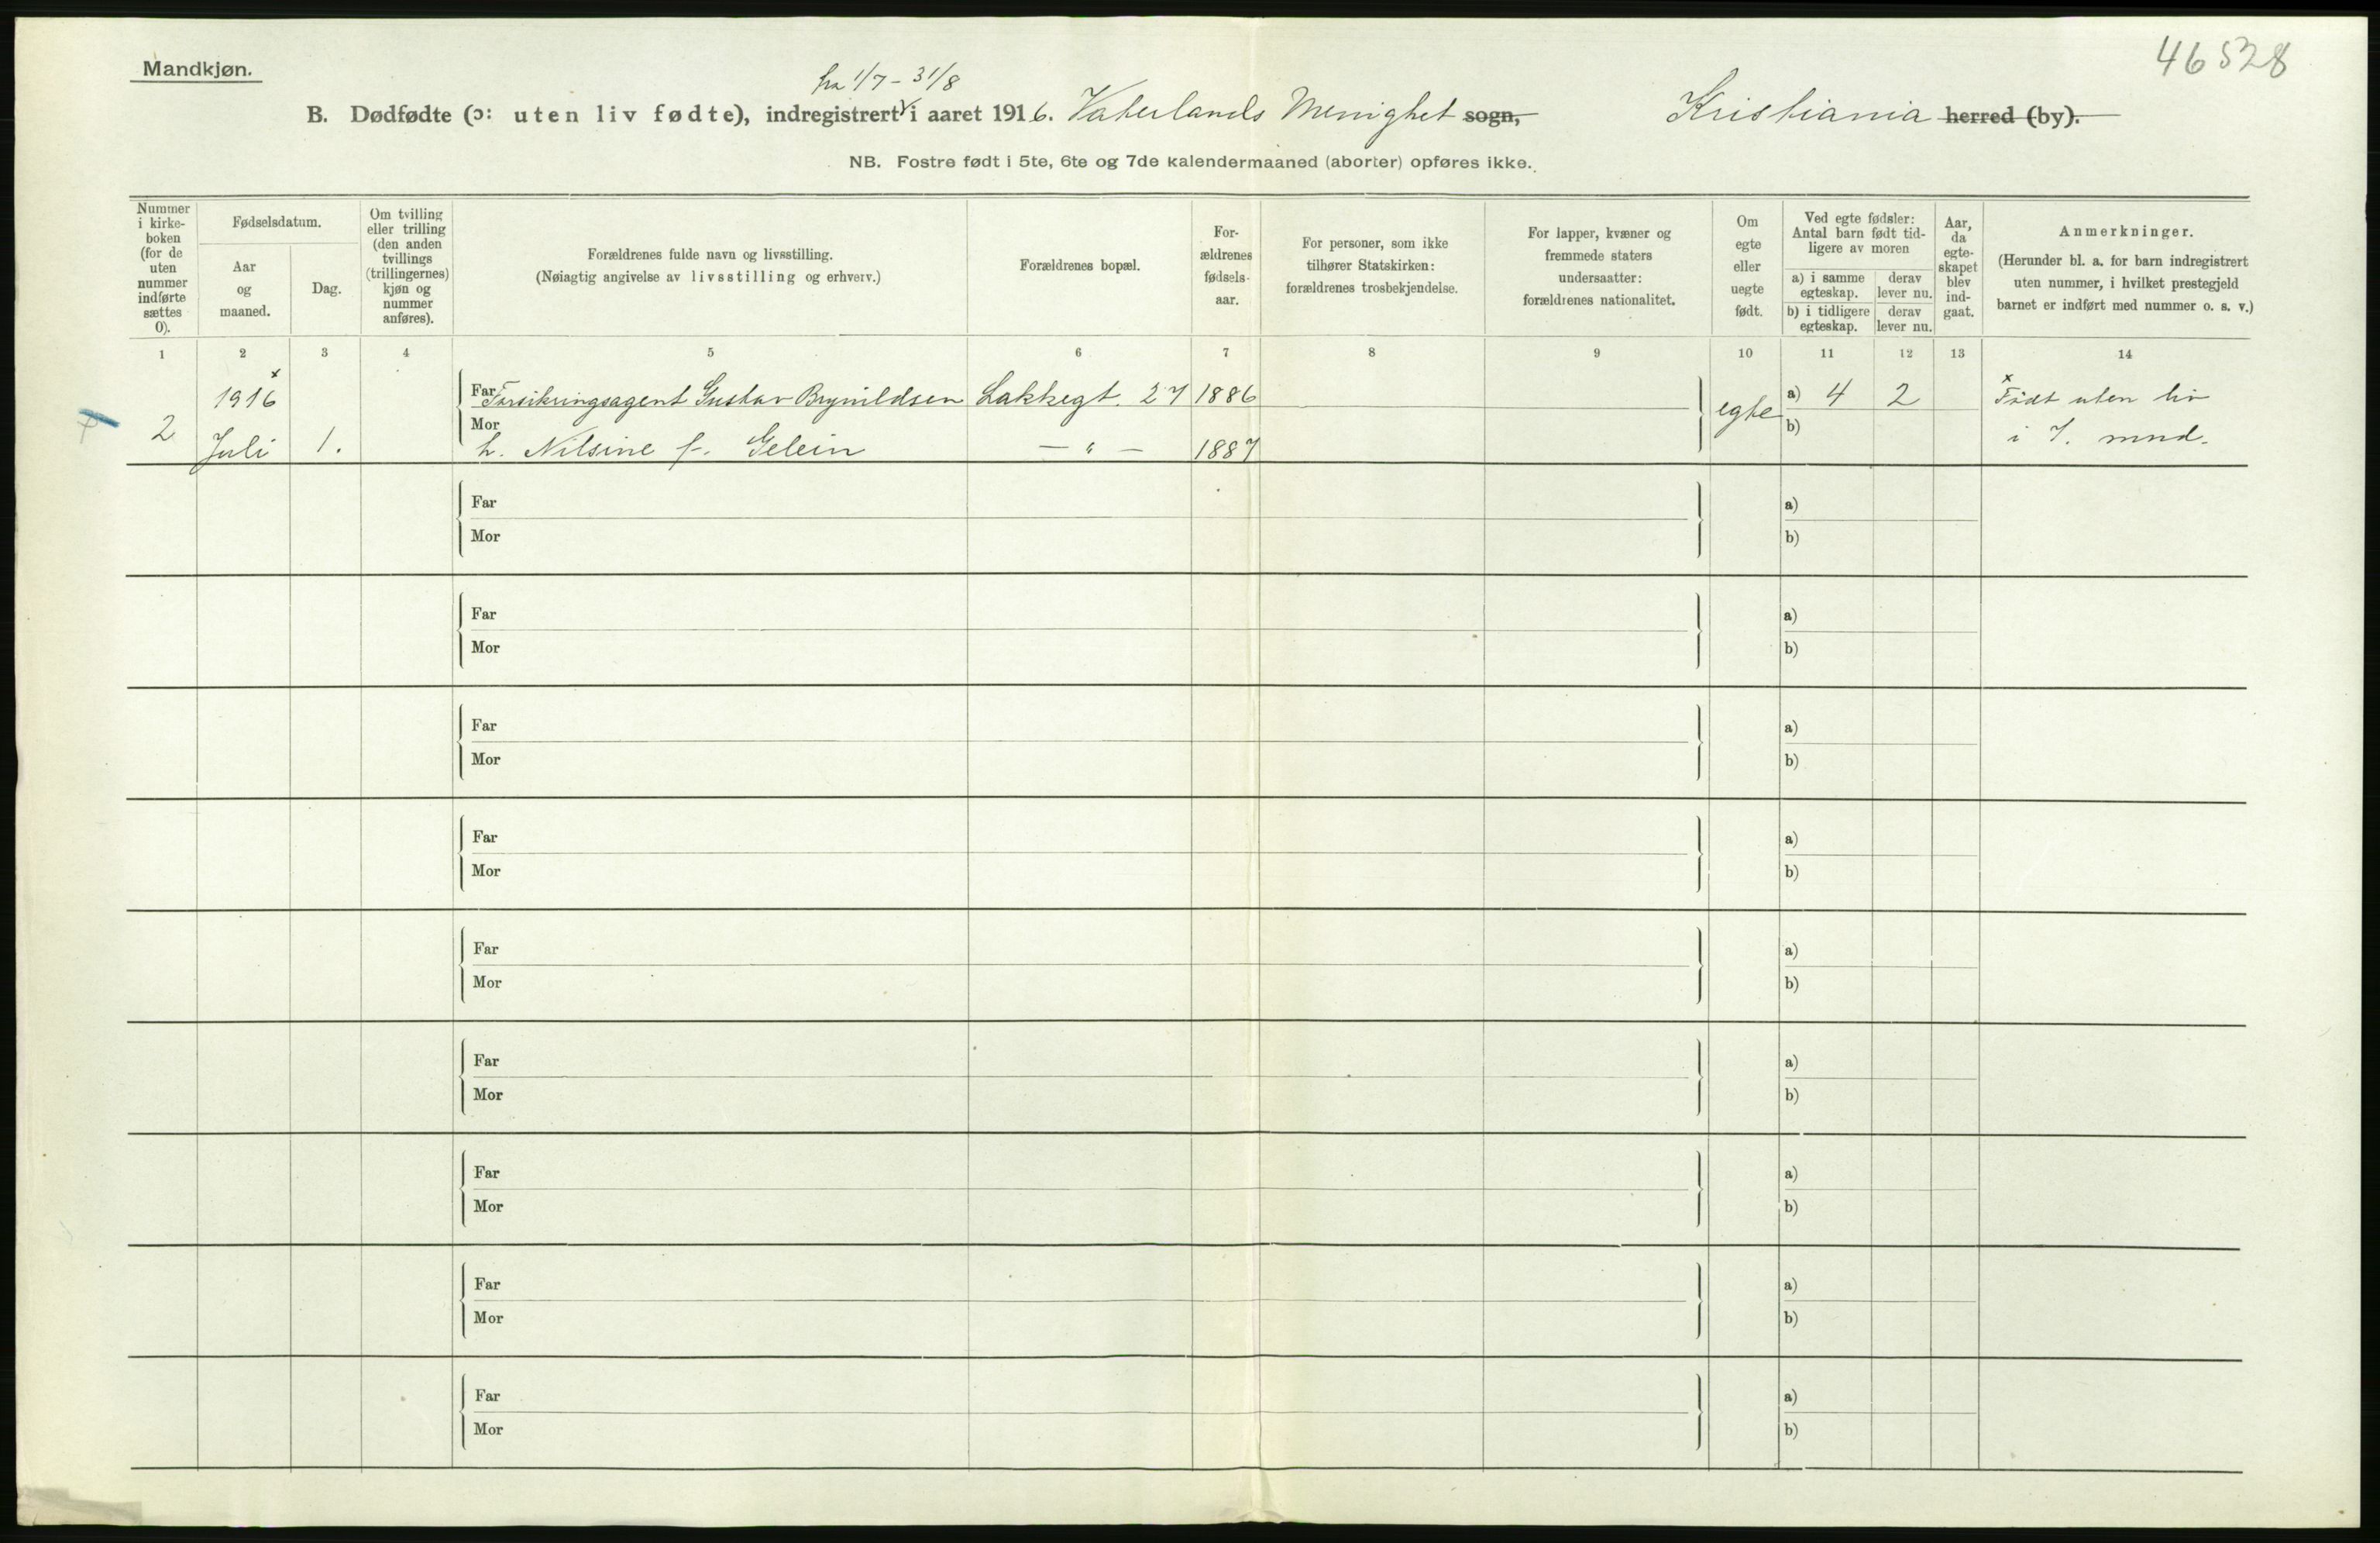 46528
Mandkjøn.
fra 1/7 - 31/8
B. Dødfødte (ɔ: uten liv fødte), indregistrert i aaret 1916. Vaterlands Menighet sogn, Kristiania herred (by).
NB. Fostre født i 5te, 6te og 7de kalendermaaned (aborter) opføres ikke.
Nummer i kirke-boken (for de uten nummer indførte sættes 0).
Fødselsdatum.
Aar og maaned.
Dag.
Om tvilling eller trilling (den anden tvillings (trillingernes) kjøn og nummer anføres).
Forældrenes fulde navn og livsstilling.
(Nøiagtig angivelse av livsstilling og erhverv.)
Forældrenes bopæl.
For-ældrenes fødsels-aar.
For personer, som ikke tilhører Statskirken: forældrenes trosbekjendelse.
For lapper, kvæner og fremmede staters undersaatter: forældrenes nationalitet.
Om egte eller uegte født.
Ved egte fødsler: Antal barn født tid-ligere av moren
a) i samme egteskap.
derav lever nu.
b) i tidligere egteskap.
derav lever nu.
Aar, da egte-skapet blev ind-gaat.
Anmerkninger.
(Herunder bl. a. for barn indregistrert uten nummer, i hvilket prestegjeld barnet er indført med nummer o. s. v.)
1 2 3 4 5 6 7 8 9 10 11 12 13 14
1916 x Far Forsikringsagent Gustav Brynildsen Lakkegt. 27 1886 egte a) 4 2 x Født uten liv
2 Juli 1. Mor h. Nilsine f. Gelein - " - 1887 b) i 7. mnd.
Far a)
Mor b)
Far a)
Mor b)
Far a)
Mor b)
Far a)
Mor b)
Far a)
Mor b)
Far a)
Mor b)
Far a)
Mor b)
Far a)
Mor b)
Far a)
Mor b)